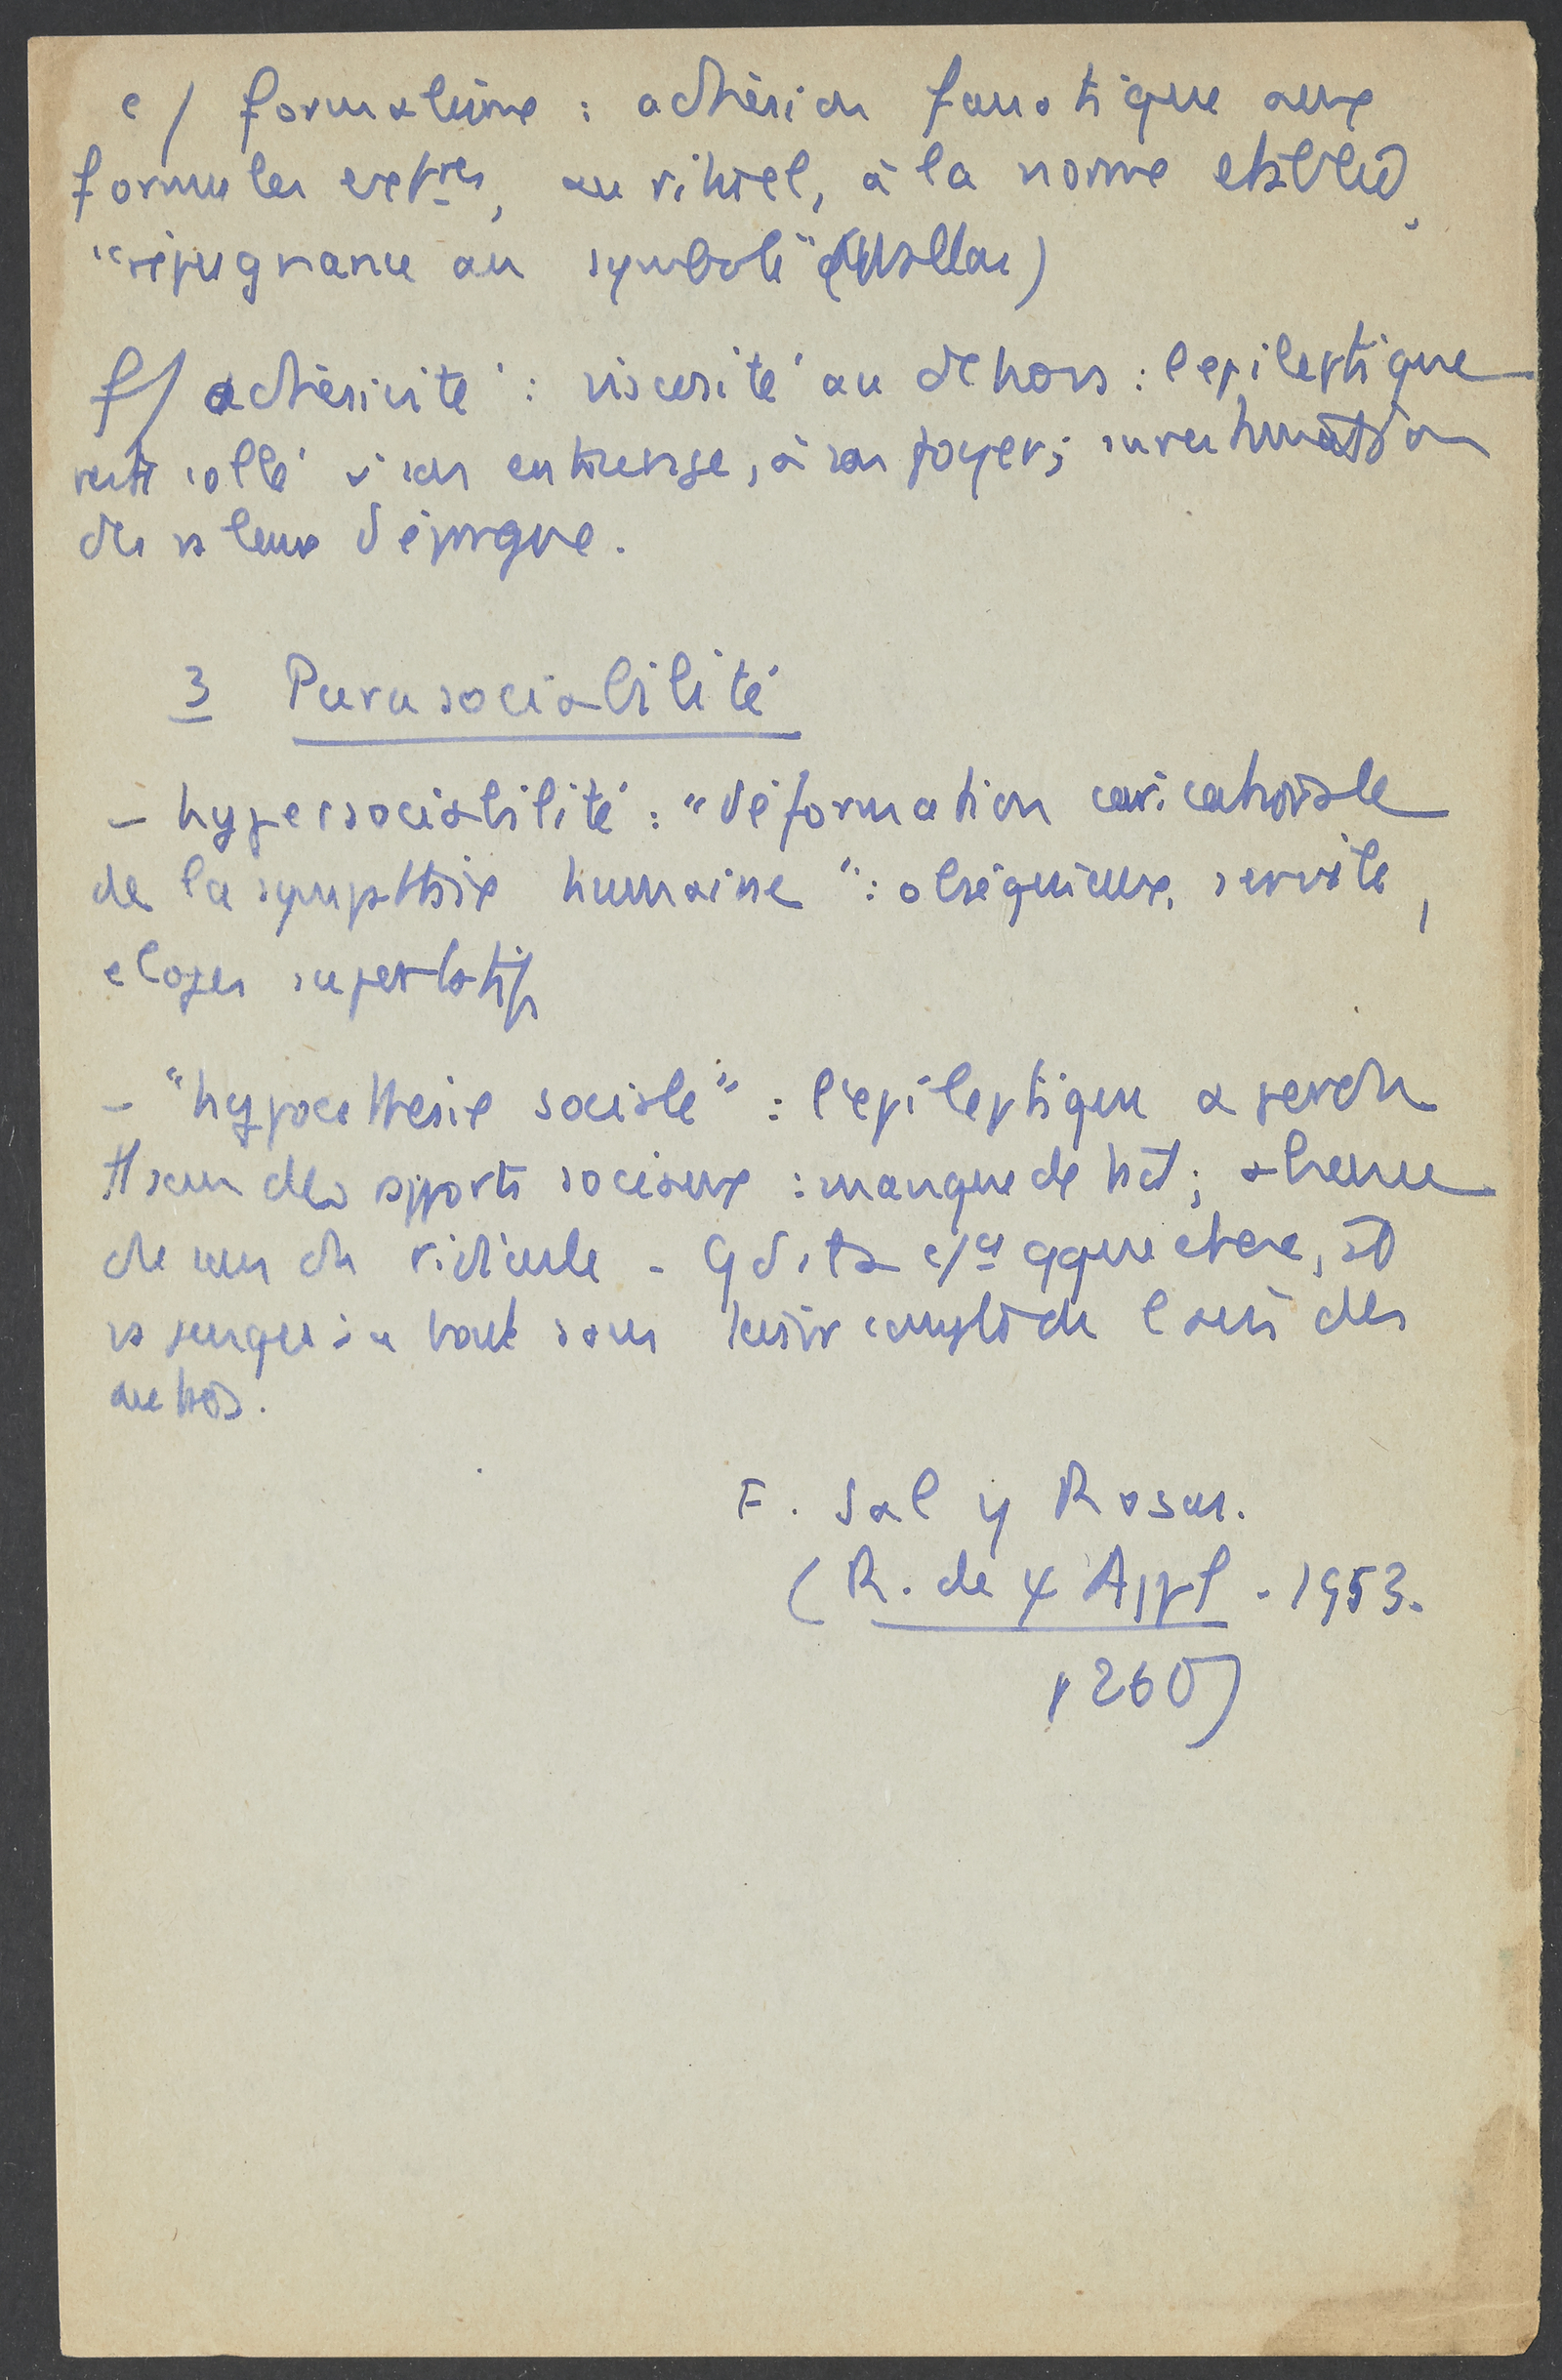 e/ formalisme : adhésion fanatique aux
formules extres, au rituel, à la norme établie,
"répugnance au symbole" (Wallon)
f/ adhésivité : viscosité au dehors : l'epileptique
reste collé à son entourage, à son foyer ; surestimation
des valeurs d'épargne.
3 Parasociabilité
- hypersociabilité : "déformation caricaturale
de la sympathie humaine" : obséquieux, servile,
eloges superlatifs
- "hypoesthésie sociale" : l'epileptique a perdu
le sens des rapports sociaux : manque de tact ; absence
de sens du ridicule - qd il a c/cé qque chose, il
va jusqu'au bout sans tenir compte de l'avis des
autres.
F. Sal y Rosas.
(R. de ψ Appl - 1953.
p 260)